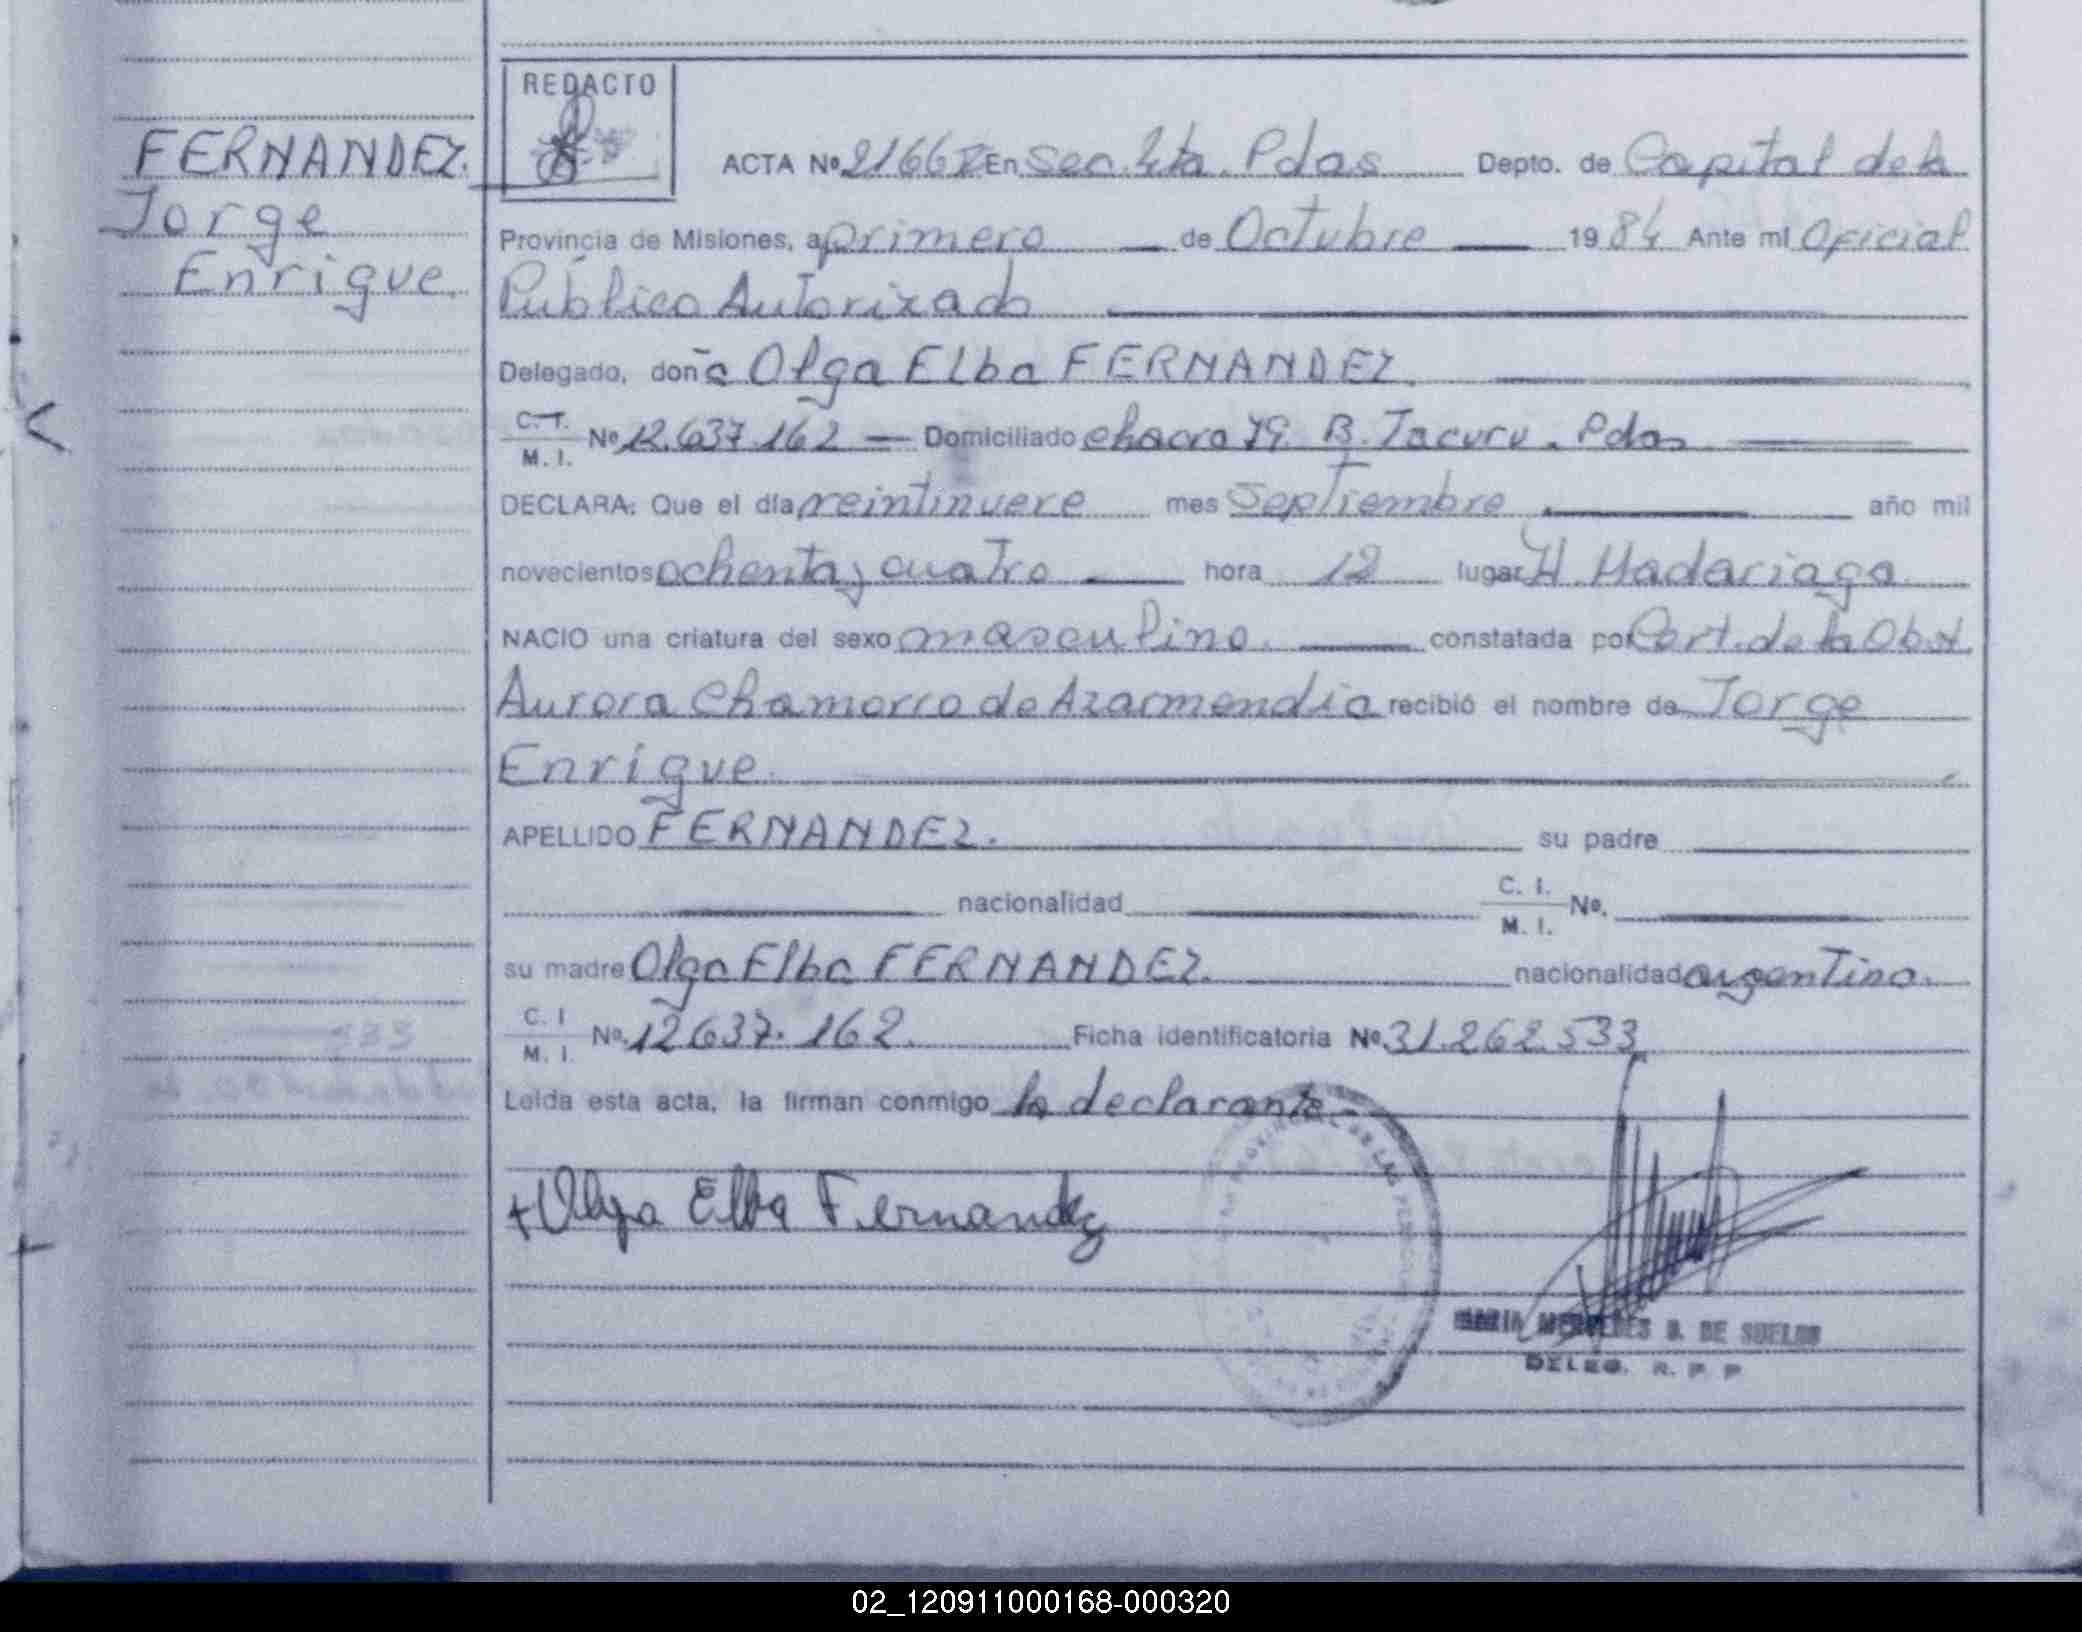 FERNANDEZ.
Jorge
Enrique.
REDACTO
ACTA Nº 2166 En Sec. 4ta. Pdas Depto. de Capital de la
Provincia de Misiones, a primero de Octubre 1984 Ante mi Oficial
Público Autorizado
Delegado, doña Olga Elba FERNANDEZ.
C. I. M. I. Nº 12.637.162 — Domiciliado chacra 79. B. Tacuru. Pdas
DECLARA: Que el día veintinueve mes Septiembre año mil
novecientos ochenta y cuatro hora 12 lugar H. Madariaga
NACIO una criatura del sexo masculino. constatada por Cert. de la Obst.
Aurora Chamorro de Azarmendia recibió el nombre de Jorge
Enrique.
APELLIDO FERNANDEZ. su padre
nacionalidad C. I. M. I. Nº.
su madre Olga Elba FERNANDEZ. nacionalidad argentina.
C. I M. I. Nº. 12637.162. Ficha identificatoria Nº 31.262.533
Leída esta acta, la firman conmigo la declarante
Olga Elba Fernandez
MARIA MERCEDES B. DE SUELDO
DELEG. R. P. P
02_120911000168-000320